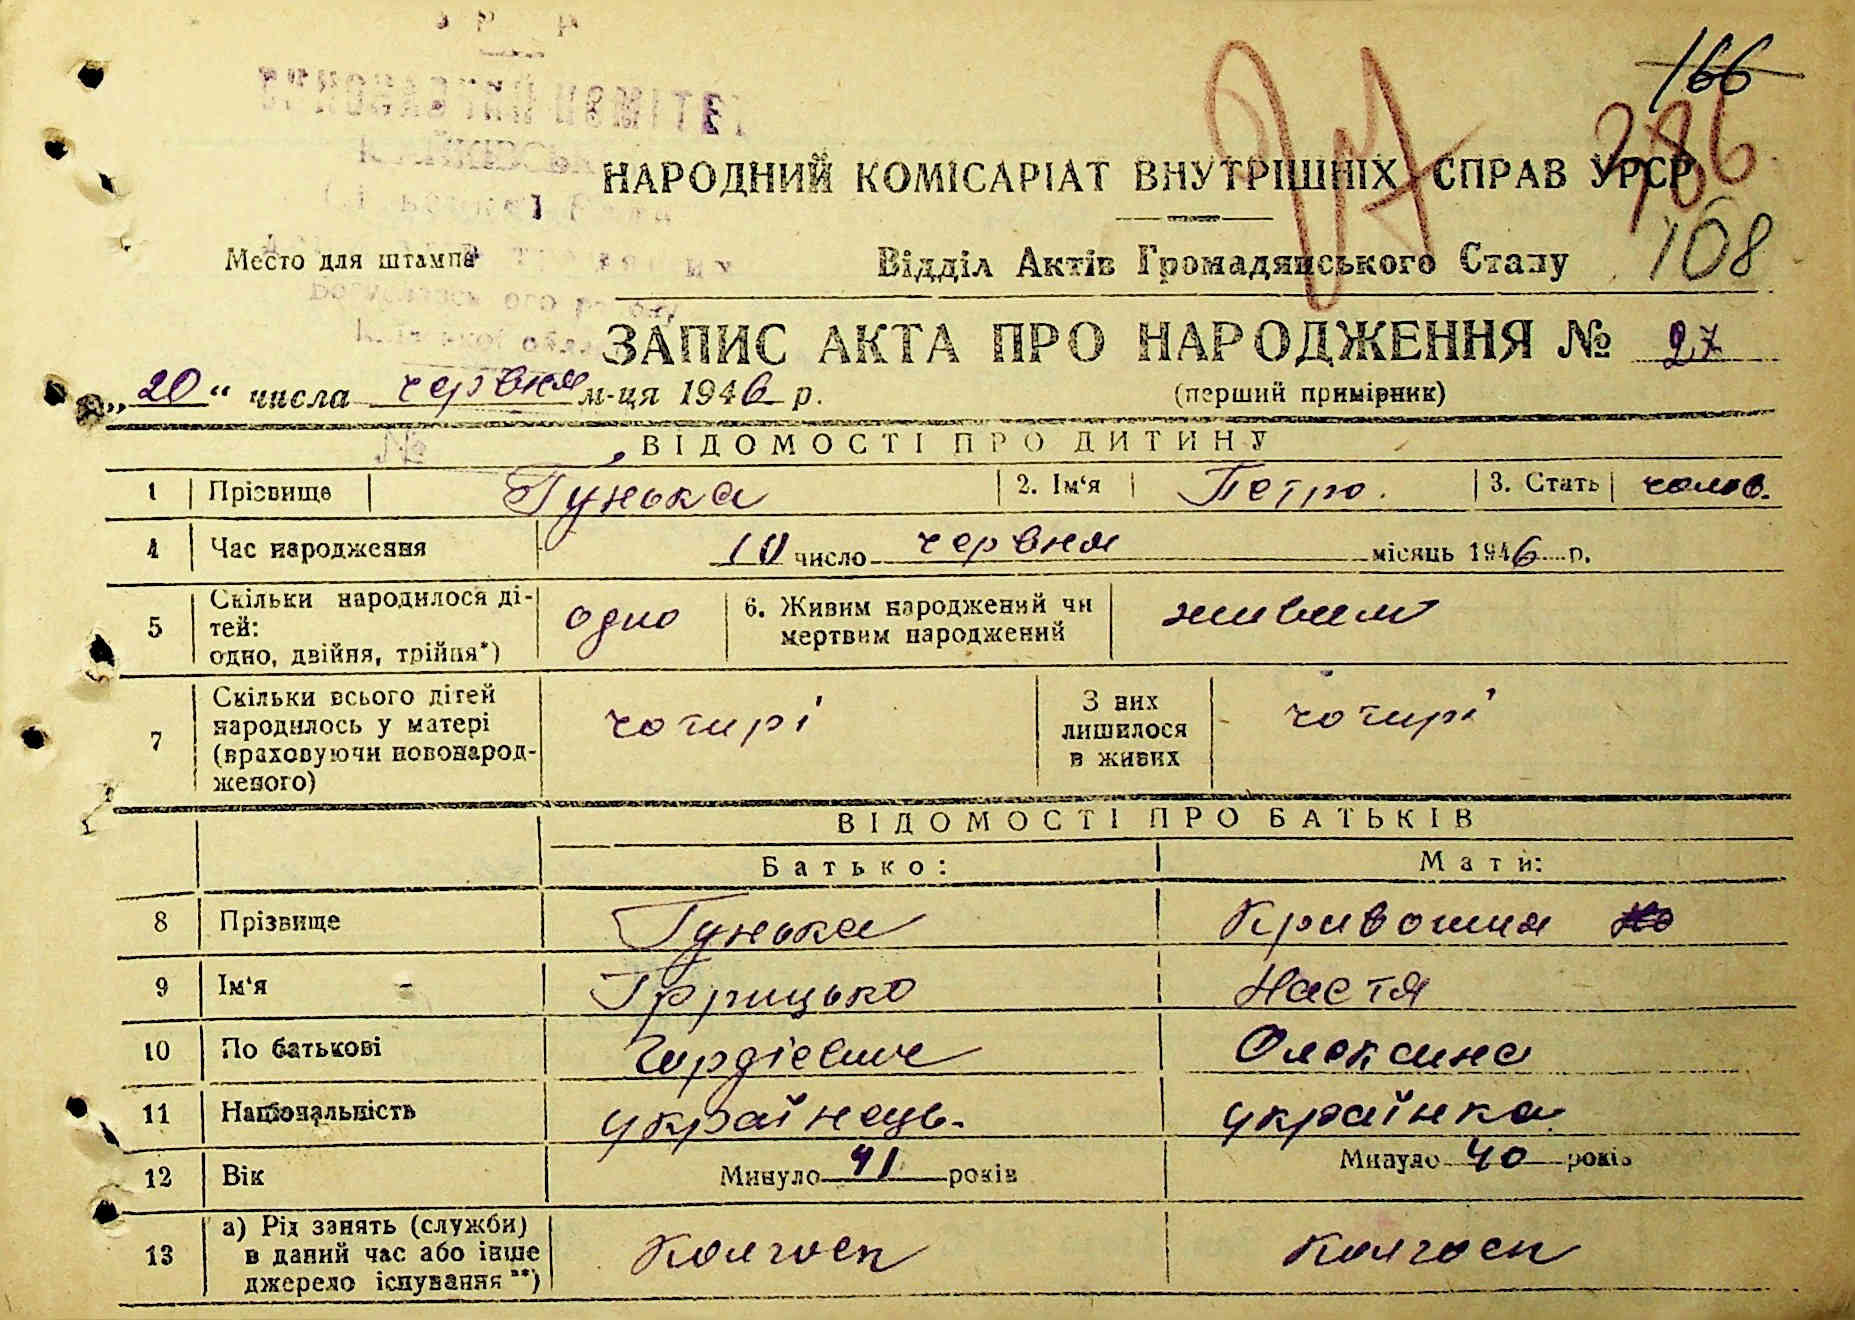 166
286
НАРОДНИЙ КОМІСАРІАТ ВНУТРІШНІХ СПРАВ УРСР
Место для штампа
Відділ Актів Громадянського Стану
108
ЗАПИС АКТА ПРО НАРОДЖЕННЯ № 27
„20“ числа червня м-ця 1946 р.
(перший примірник)
ВІДОМОСТІ ПРО ДИТИНУ
1 Прізвище Гунька 2. Ім‘я Петро. 3. Стать чолов.
4 Час народження 10 число червня місяць 1946 р.
5 Скільки народилося ді-
тей:
одно, двійня, трійня*) одно 6. Живим народжений чи
мертвим народжений живим
7 Скільки всього дітей
народилось у матері
(враховуючи новонарод-
женого) чотирі З них
лишилося
в живих чотирі
ВІДОМОСТІ ПРО БАТЬКІВ
Батько: Мати:
8 Прізвище Гунька Кривошия
9 Ім‘я Григцько Настя
10 По батькові Гордієвич Олексина
11 Національність українець. українка
12 Вік Минуло 41 років Минуло 40 років
13 а) Рід занять (служби)
в даний час або інше
джерело існування**) Колгосп Колгосп